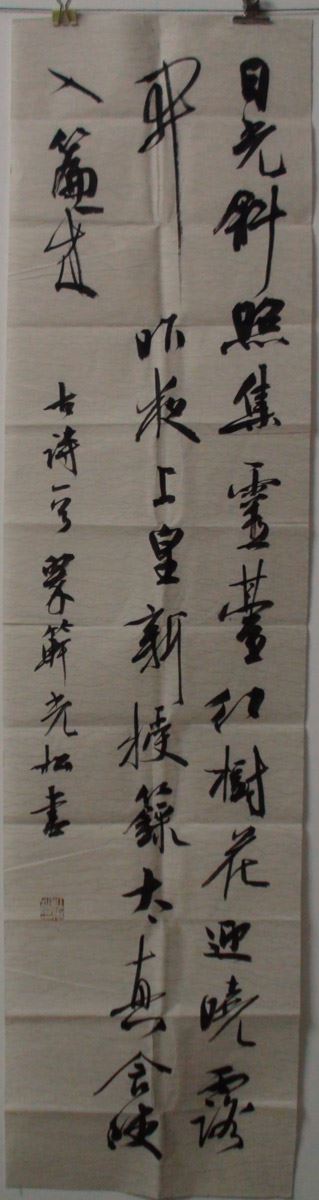 日光斜照集靈臺紅樹花迎曉露
開昨夜上皇新授籙太真含咲
入簾來
古詩一首 老松書